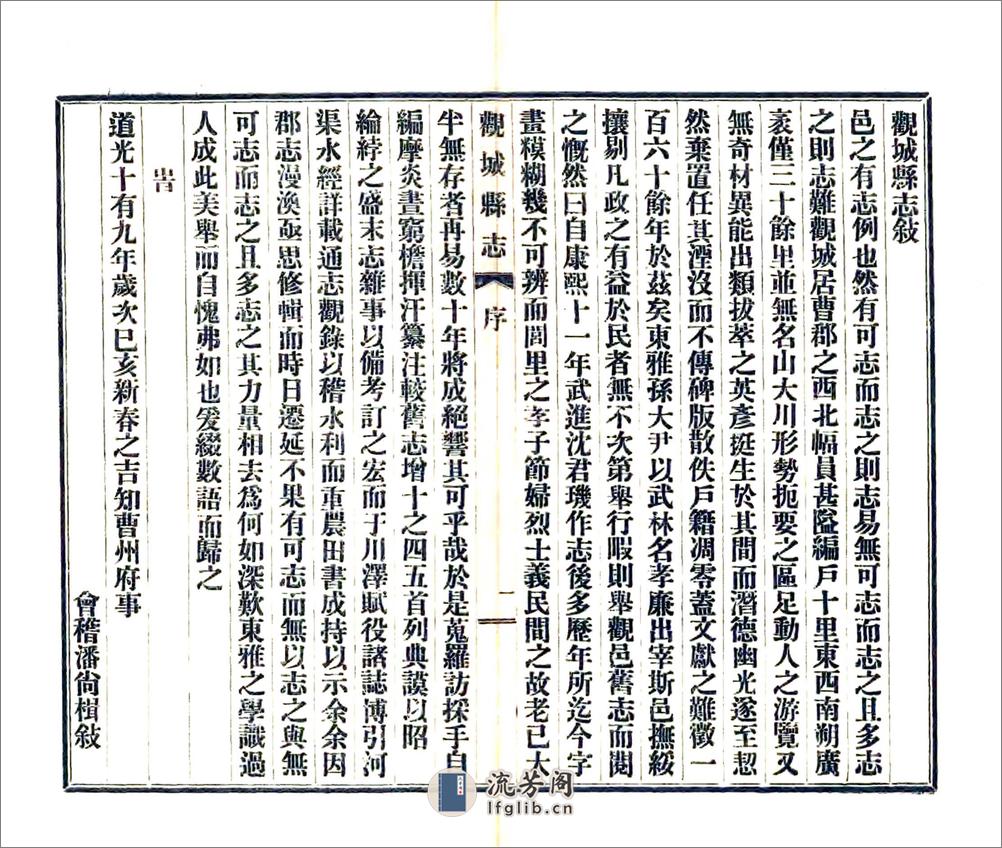 觀城縣志敍
邑之有志例也然有可志而志之則志易無可志而志之且多志
之則志難觀城居曹郡之西北幅員甚隘編戶十里東西南朔廣
袤僅三十餘里並無名山大川形勢扼要之區足動人之游覽又
無奇材異能出類拔萃之英彥挺生於其間而潛德幽光遂至恝
然棄置任其湮沒而不傳碑版散佚戶籍凋零蓋文獻之難徵一
百六十餘年於茲矣東雅孫大尹以武林名孝廉出宰斯邑撫綏
攘剔凡政之有益於民者無不次第舉行暇則舉觀邑舊志而閱
之慨然曰自康熙十一年武進沈君璣作志後多歷年所迄今字
畫糢糊幾不可辨而閭里之孝子節婦烈士義民間之故老已大
觀城縣志
序
一
半無存者再易數十年將成絕響其可乎哉於是蒐羅訪採手自
編摩炎晝窮檐揮汗纂注較舊志增十之四五首列典謨以昭
綸綍之盛末志雜事以備考訂之宏而于川澤賦役諸誌博引河
渠水經詳載通志觀錄以稽水利而重農田書成持以示余余因
郡志漫漶亟思修輯而時日遷延不果有可志而無以志之與無
可志而志之且多志之其力量相去爲何如深歎東雅之學識過
人成此美舉而自愧弗如也爰綴數語而歸之
旹
道光十有九年歲次己亥新春之吉知曹州府事
會稽潘尙楫敍
流芳阁
lfglib.cn